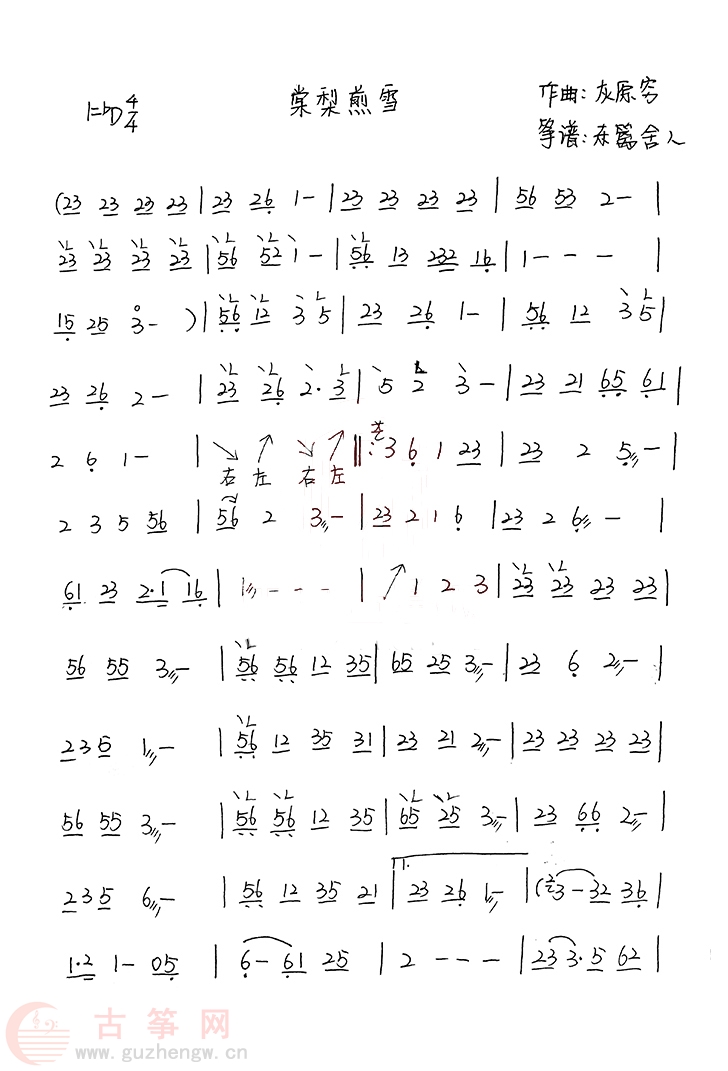 棠梨煎雪
1=♭D 4/4
作曲:灰原穷
筝谱:东篱舍人
(23 23 23 23 | 23 26 1 - | 23 23 23 23 | 56 53 2 - |
23 23 23 23 | 56 52 1 - | 56 13 232 16 | 1 - - - |
15 25 3 - ) | 56 12 3 5 | 23 26 1 - | 56 12 3 5 |
23 26 2 - | 23 26 2· 3 | 5 2 3 - | 23 21 65 61 |
2 6 1 - | ↘ ↗ ↘ ↗ ‖: 3 6 1 23 | 23 2 5 - |
右 左 右 左
2 3 5 56 | 56 2 3 - | 23 2 1 6 | 23 2 6 - |
61 23 2·1 16 | 1 - - - | ↗ 1 2 3 | 23 23 23 23 |
56 55 3 - | 56 56 12 35 | 65 25 3 - | 23 6 2 - |
235 1 - | 56 12 35 31 | 23 21 2 - | 23 23 23 23 |
56 55 3 - | 56 56 12 35 | 65 25 3 - | 23 66 2 - |
235 6 - | 56 12 35 21 | 1. 23 26 1 - | (3 - 32 36 |
1·2 1 - 05 | 6 - 61 25 | 2 - - - | 23 3·5 62 |
古筝网
www.guzhengw.cn